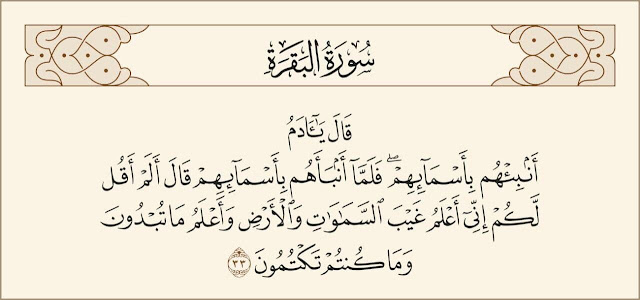 سُورَةُ البَقَرَةِ
قَالَ يَـٰٓـَٔادَمُ
أَنۢبِئۡهُم بِأَسۡمَآئِهِمۡۖ فَلَمَّآ أَنۢبَأَهُم بِأَسۡمَآئِهِمۡ قَالَ أَلَمۡ أَقُل
لَّكُمۡ إِنِّيٓ أَعۡلَمُ غَيۡبَ ٱلسَّمَٰوَٰتِ وَٱلۡأَرۡضِ وَأَعۡلَمُ مَا تُبۡدُونَ
وَمَا كُنتُمۡ تَكۡتُمُونَ ٣٣